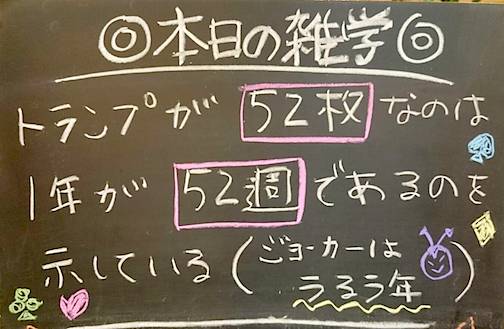 ◎本日の雑学◎
トランプが 52枚 なのは
1年が 52週 であるのを
示している(ジョーカーは
うるう年)